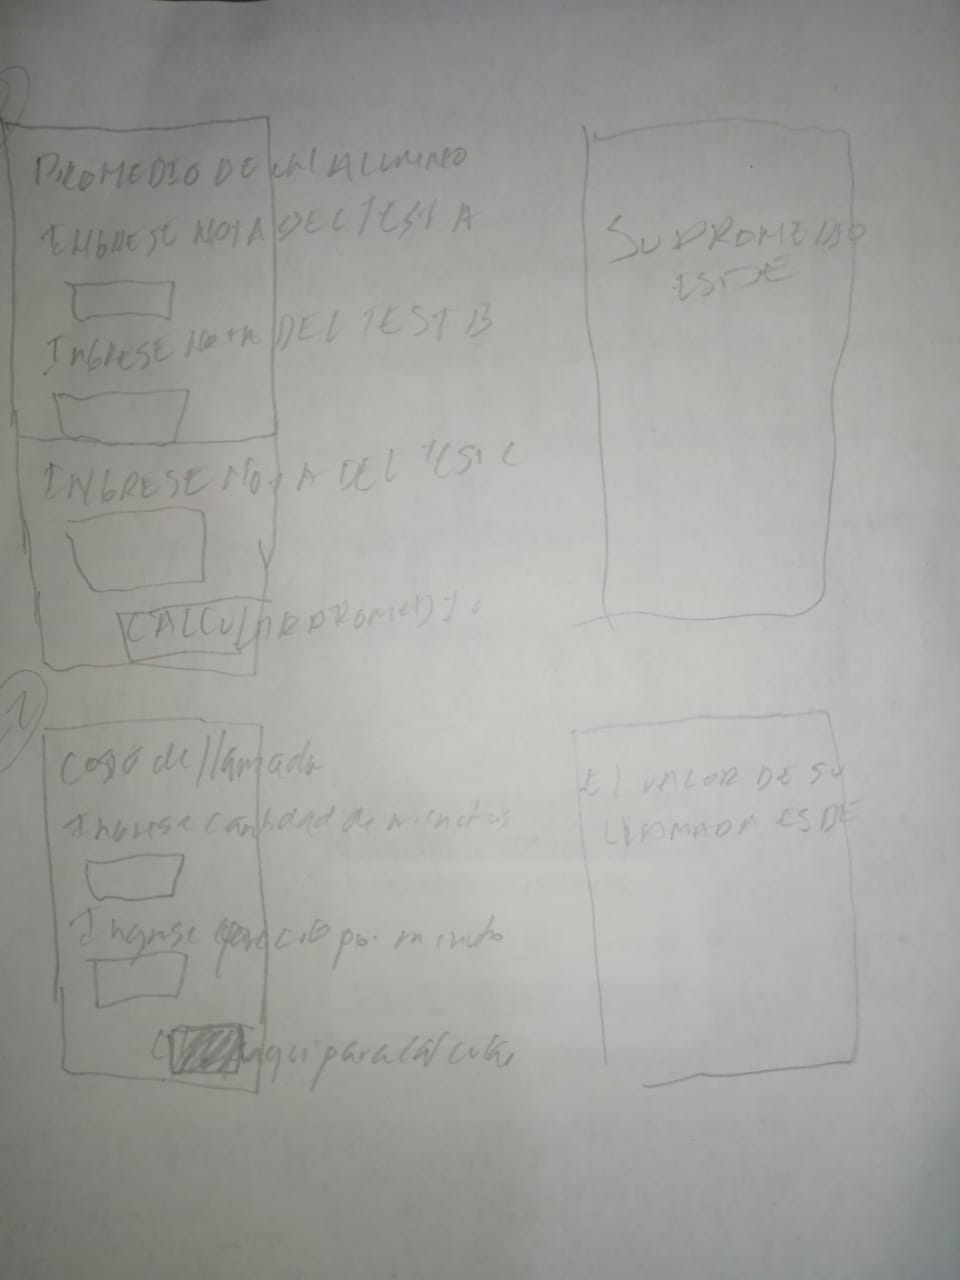 2
PROMEDIO DE UN ALUMNO
INGRESE NOTA DEL TEST A
INGRESE NOTA DEL TEST B
INGRESE NOTA DEL TEST C
CALCULAR PROMEDIO
SU PROMEDIO
ES DE
1
de llamada
Ingrese cantidad de minutos
Ingrese por minuto
aqui para calcular
El VALOR DE SU
LLAMADA ES DE